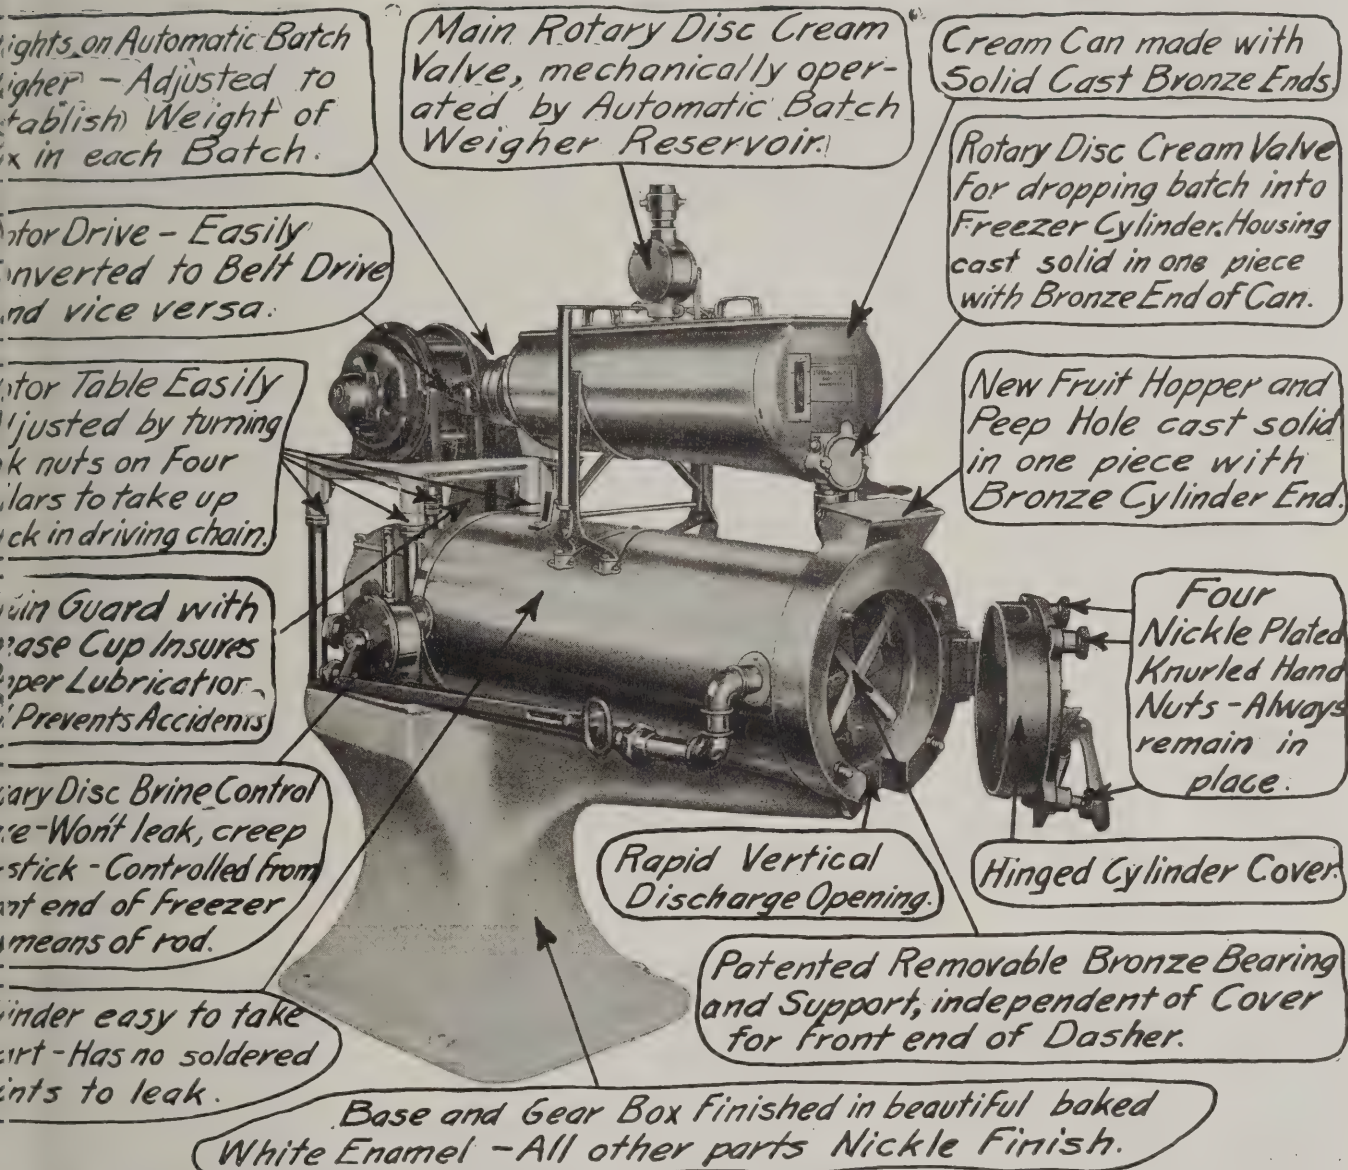 ights on Automatic Batch
igher - Adjusted to
tablish Weight of
x in each Batch.
Main Rotary Disc Cream
Valve, mechanically oper-
ated by Automatic Batch
Weigher Reservoir.
Cream Can made with
Solid Cast Bronze Ends.
Rotary Disc Cream Valve
For dropping batch into
Freezer Cylinder. Housing
cast solid in one piece
with Bronze End of Can.
otor Drive - Easily
onverted to Belt Drive
nd vice versa.
otor Table Easily
justed by turning
k nuts on Four
lars to take up
ck in driving chain.
New Fruit Hopper and
Peep Hole cast solid
in one piece with
Bronze Cylinder End.
ain Guard with
ease Cup Insures
per Lubrication
Prevents Accidents
Four
Nickle Plated
Knurled Hand
Nuts - Always
remain in
place.
ary Disc Brine Control
e - Won't leak, creep
stick - Controlled from
nt end of Freezer
means of rod.
Rapid Vertical
Discharge Opening.
Hinged Cylinder Cover.
Patented Removable Bronze Bearing
and Support, independent of Cover
for Front end of Dasher.
inder easy to take
art - Has no soldered
ints to leak.
Base and Gear Box Finished in beautiful baked
White Enamel - All other parts Nickle Finish.